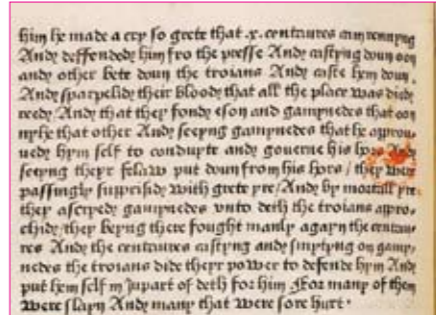 him he made a cry so grete that .x. centaures cam rennyng
And deffended him fro the presse And castyng doun oon
and other bete doun the troians And caste hem doun.
And sparpelid their blood that all the place was died
reed And that they fonde eson and ganymedes that oon
nyhe that other And seeyng ganymedes that he approu
ued hym self to conduyte and gouerne his hors And
seeyng theyr felaw put doun from his hors / they were
passingly surprised with grete yre / And by mortall yre
they ascryed ganymedes vnto deth the troians appro
chid / they beyng there fought manly agayn the centau
res And the centaures castyng and smytyng on gany
nedes the troians dide theyr power to defende hym And
put hem self in jupart of deth for him For many of them
were slayn And many that were sore hurt.